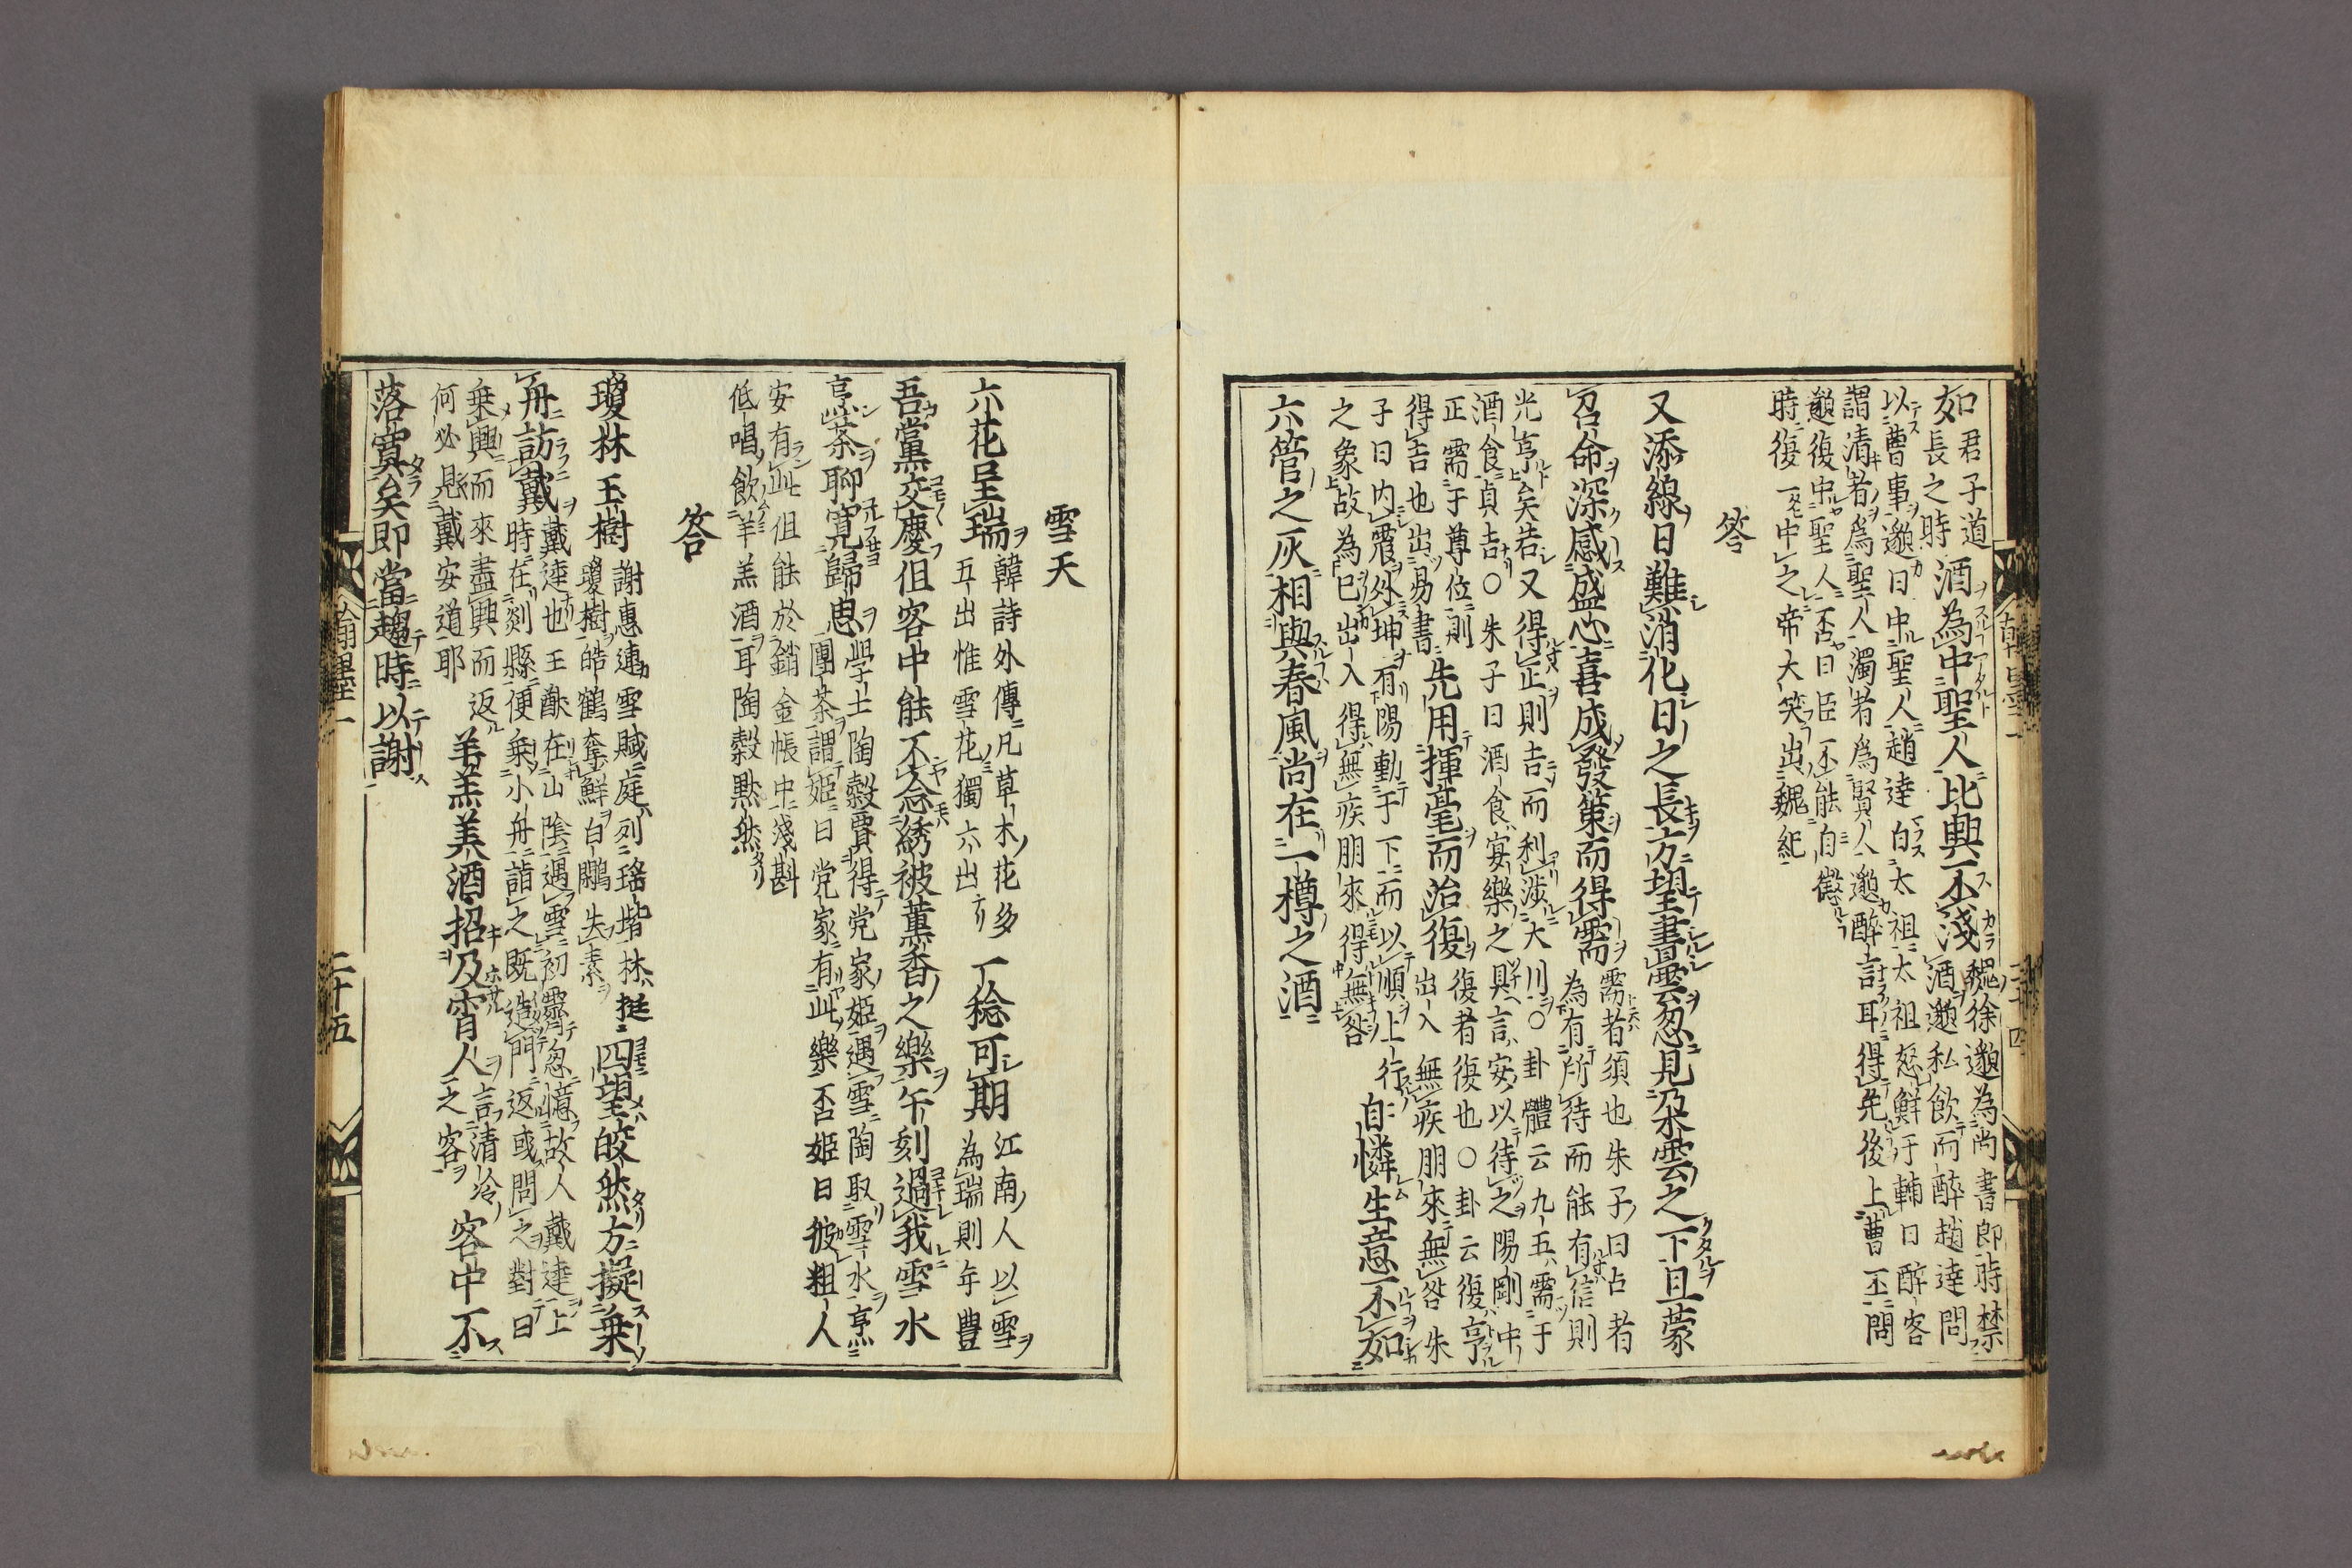 如
君子道
長之時
酒為中聖人比興不淺
魏徐邈為尚書郎時禁
酒邈私飲而醉趙達問
以曹事邈曰中聖人趙達白太祖太祖怒鮮于輔曰醉客
謂清者爲聖人濁者爲賢人邈醉言耳得免後上曹丕問
邈復中聖人否曰臣不能自懲
時復一中之帝大笑出魏紀
答
又添線日難消化日之長方望書雲忽見朶雲之下且蒙
召命深感盛心喜成發策而得需
需者須也朱子曰占者
為有所待而能有信則
光亨矣若又得正則吉而利渉大川○卦體云九五需于
酒食貞吉○朱子曰酒食宴樂之具言安以待之陽剛中
正需于尊位則
得吉也出易書
先用揮毫而治復
復者復也○卦云復亨
出入無疾朋來無咎朱
子曰内震外坤有陽動于下而以順上行
之象故為已出入得無疾朋來得無咎
自憐生意不如
六管之灰相與春風尚在一樽之酒
雪天
六花呈瑞
韓詩外傳凡草木花多
五出惟雪花獨六出
丁稔可期
江南人以雪
為瑞則年豊
吾黨交慶但客中能不念綉被薫香之樂午刻過我雪水
烹茶聊寛歸思
學士陶穀買得党家姫遇雪陶取雪水烹
團茶謂姫曰党家有此樂否姫曰彼粗人
安有此但能於銷金帳中淺斟
低唱飲羊羔酒耳陶穀黙然
答
瓊林玉樹
謝惠連雪賦庭列瑤堦林挺
瓊樹皓鶴奪鮮白鷳失素
四望皎然方擬乗
舟訪戴
戴逵也王猷在山陰遇雪初霽忽憶故人戴逵上
時在剡縣便乗小舟詣之既造門返或問之對曰
乗興而來盡興而返
何必見戴安道耶
羊羔美酒招及宵人
言清冷
之客
客中不
落寞矣即當趨時以謝
翰墨一
二十五